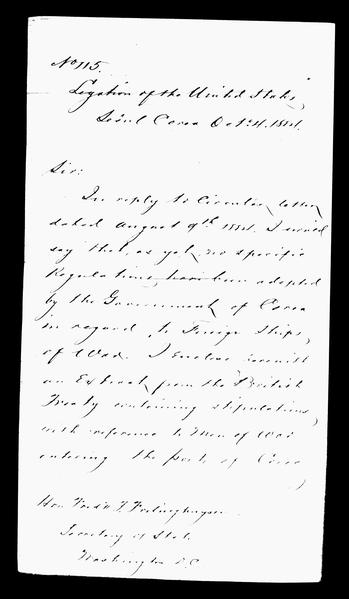 No 115.
Legation of the United States,
Seoul Corea Oct. 4, 1884.
Sir:
In reply to Circular letter
dated August 9th 1884. I would
say that, as yet, no specific
Regulations, have been adopted
by the Government of Corea
in regard to Foreign Ships,
of War. I enclose herewith
an Extract from the British
Treaty containing stipulations,
with reference to Men of War
entering the ports of Corea
Hon. Fred'k T. Frelinghuysen
Secretary of State
Washington D.C.